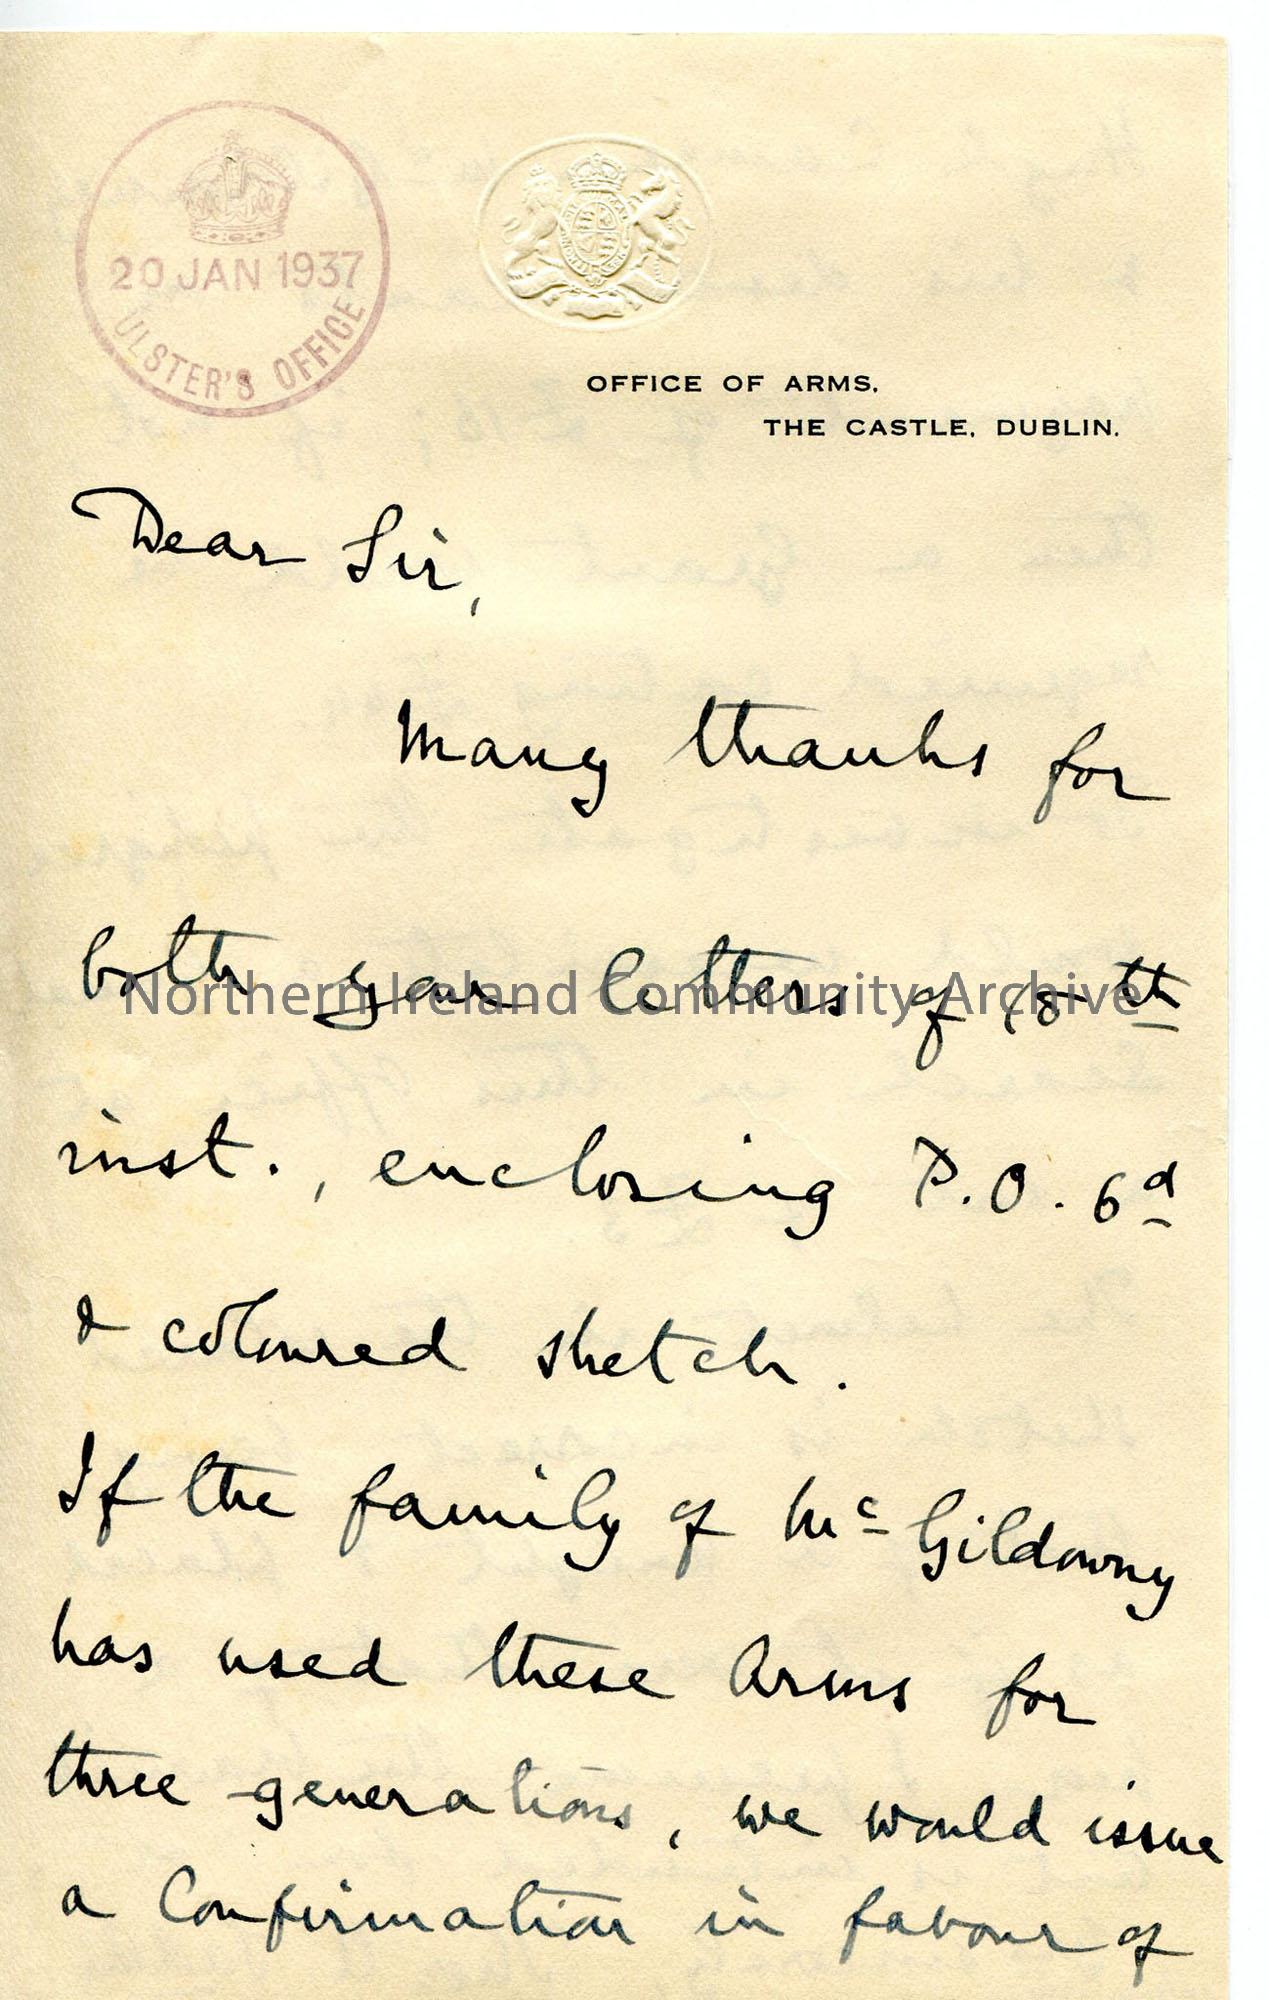 20 JAN 1937
ULSTER'S OFFICE
OFFICE OF ARMS,
THE CASTLE, DUBLIN.
Dear Sir,
Many thanks for
both your letters of 18th
inst., enclosing P.O. 6d
& coloured sketch.
If the family of Mc Gildowny
has used these Arms for
three generations, we would issue
a Confirmation in favour of
Northern Ireland Community Archive